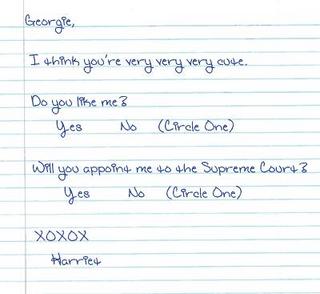 Georgie,
I think you're very very very cute.
Do you like me?
Yes No (Circle One)
Will you appoint me to the Supreme Court?
Yes No (Circle One)
XOXOX
Harriet